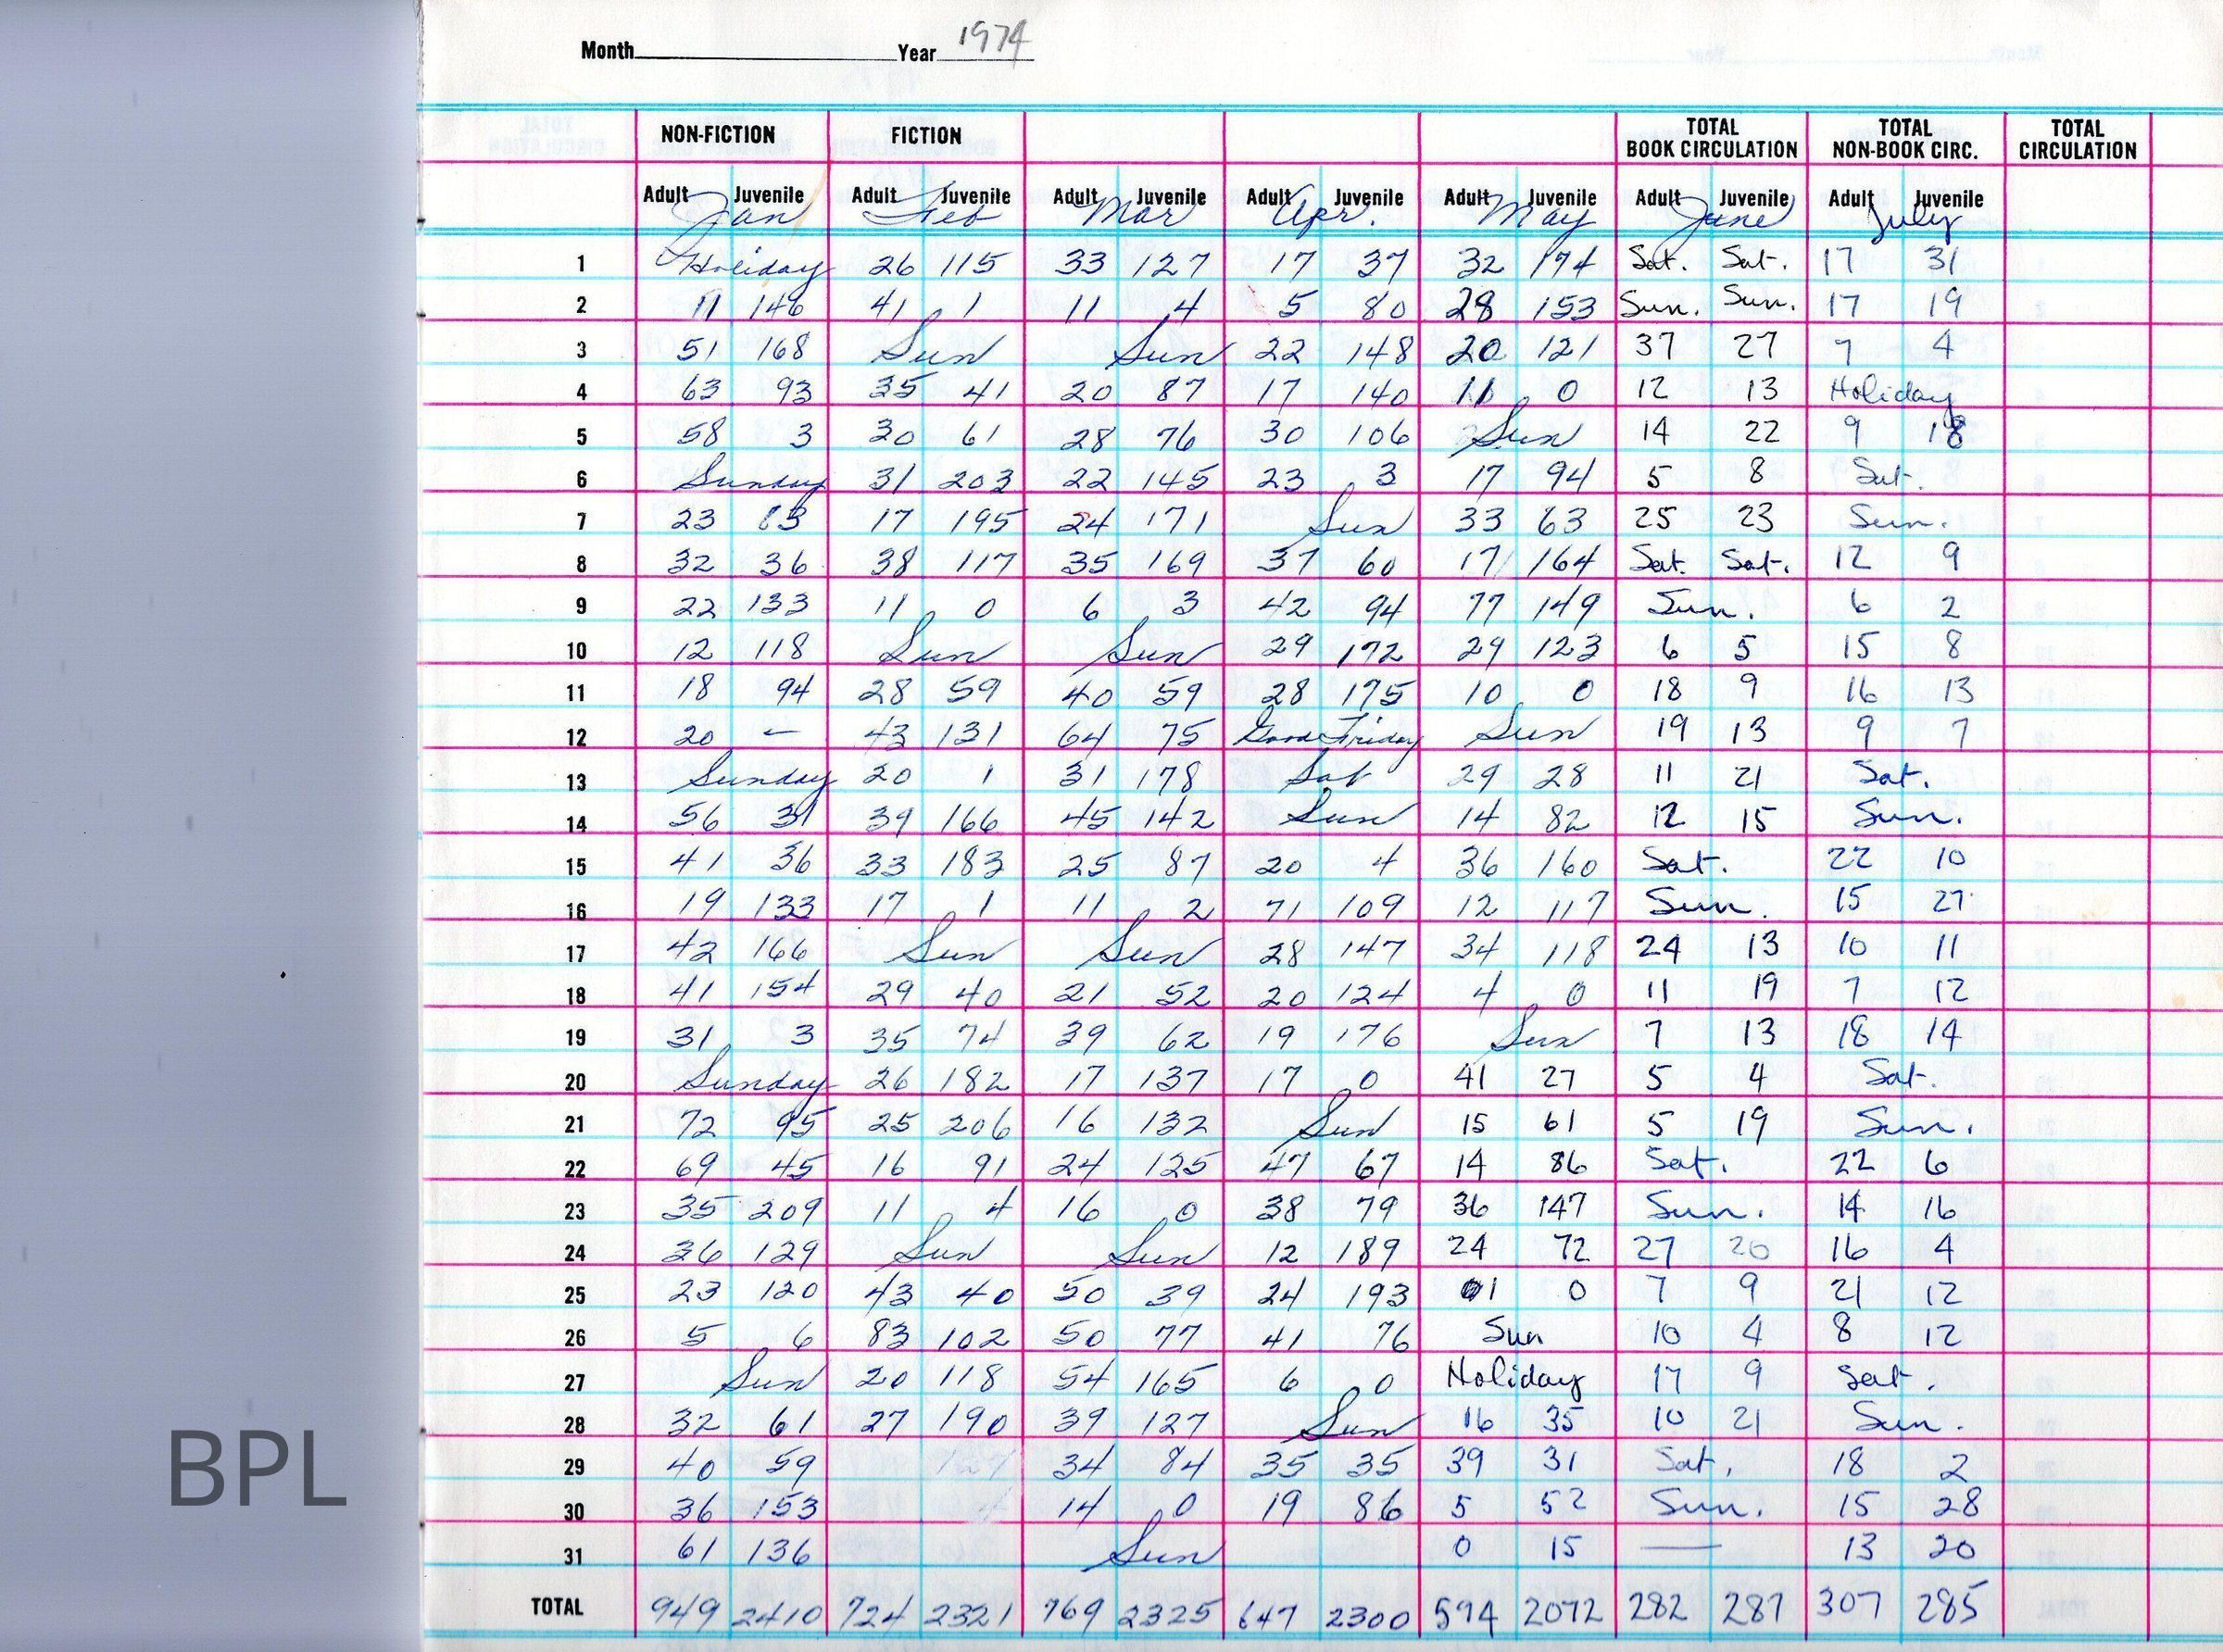 Month Year 1974
NON-FICTION FICTION TOTAL BOOK CIRCULATION TOTAL NON-BOOK CIRC. TOTAL CIRCULATION
Adult Juvenile Adult Juvenile Adult Juvenile Adult Juvenile Adult Juvenile Adult Juvenile Adult Juvenile
Jan Feb Mar Apr. May June July
1 Holiday 26 115 33 127 17 37 32 174 Sat. Sat. 17 31
2 11 146 41 1 11 4 5 80 28 153 Sun. Sun. 17 19
3 51 168 Sun Sun 22 148 20 121 37 27 7 4
4 63 93 35 41 20 87 17 140 11 0 12 13 Holiday
5 58 3 30 61 28 76 30 106 Sun 14 22 9 18
6 Sunday 31 203 22 145 23 3 17 94 5 8 Sat.
7 23 17 195 24 171 Sun 33 63 25 23 Sun.
8 32 36 38 117 35 169 37 60 17 164 Sat. Sat. 12 9
9 22 133 11 0 6 3 42 94 77 149 Sun. 6 2
10 12 118 Sun Sun 29 172 29 123 6 5 15 8
11 18 94 28 59 40 59 28 175 10 0 18 9 16 13
12 20 - 43 131 64 75 Good Friday Sun 19 13 9 7
13 Sunday 20 1 31 178 Sat 29 28 11 21 Sat.
14 56 31 39 166 45 142 Sun 14 82 12 15 Sun.
15 41 36 33 183 25 87 20 4 36 160 Sat. 22 10
16 19 133 17 1 11 2 71 109 12 117 Sun. 15 27
17 42 166 Sun Sun 28 147 34 118 24 13 10 11
18 41 154 29 40 21 52 20 124 4 0 11 19 7 12
19 31 3 35 74 39 62 19 176 Sun 7 13 18 14
20 Sunday 26 182 17 137 17 0 41 27 5 4 Sat.
21 72 95 25 206 16 132 Sun 15 61 5 19 Sun.
22 69 45 16 91 24 125 47 67 14 86 Sat. 22 6
23 35 209 11 4 16 0 38 79 36 147 Sun. 14 16
24 36 129 Sun Sun 12 189 24 72 27 20 16 4
25 23 120 43 40 50 39 24 193 0 7 9 21 12
26 5 6 83 102 50 77 41 76 Sun 10 4 8 12
27 Sun 20 118 54 165 6 0 Holiday 17 9 Sat.
28 32 61 27 190 39 127 Sun 16 35 10 21 Sun.
29 40 59 34 84 35 35 39 31 Sat. 18 2
30 36 153 14 0 19 86 5 52 Sun. 15 28
31 61 136 Sun 0 15 — 13 20
TOTAL 949 2410 724 2321 769 2325 647 2300 594 2072 282 287 307 285
BPL